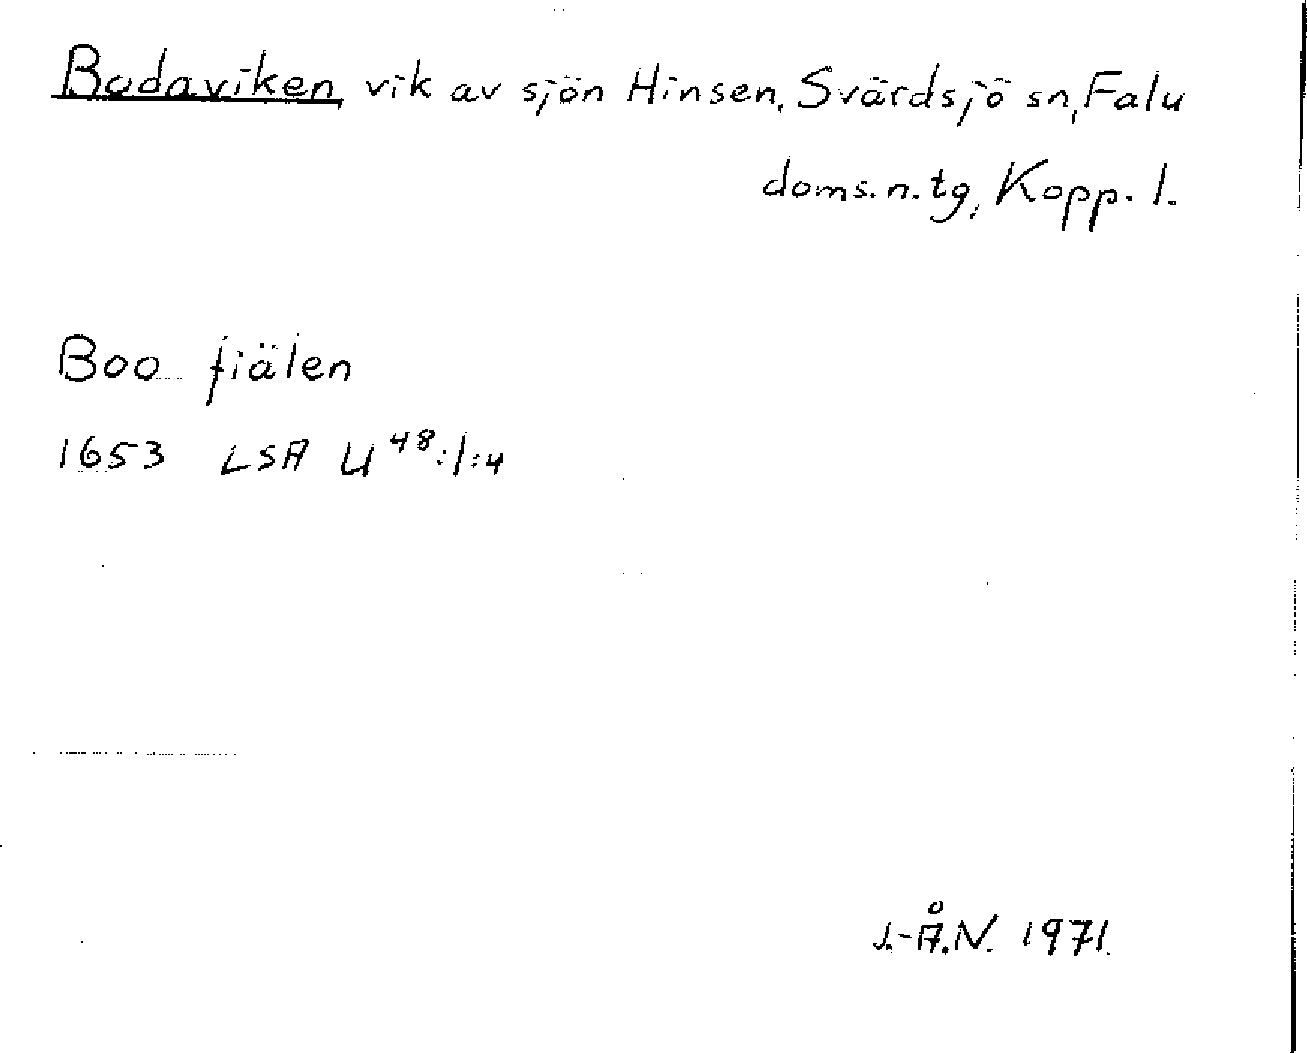 Bodaviken, vik av sjön Hinsen, Svärdsjö sn, Falu
doms.n.tg, Kopp. l.
Boo fiälen
1653 LSA U 48:1:4
J.-Å.N. 1971.